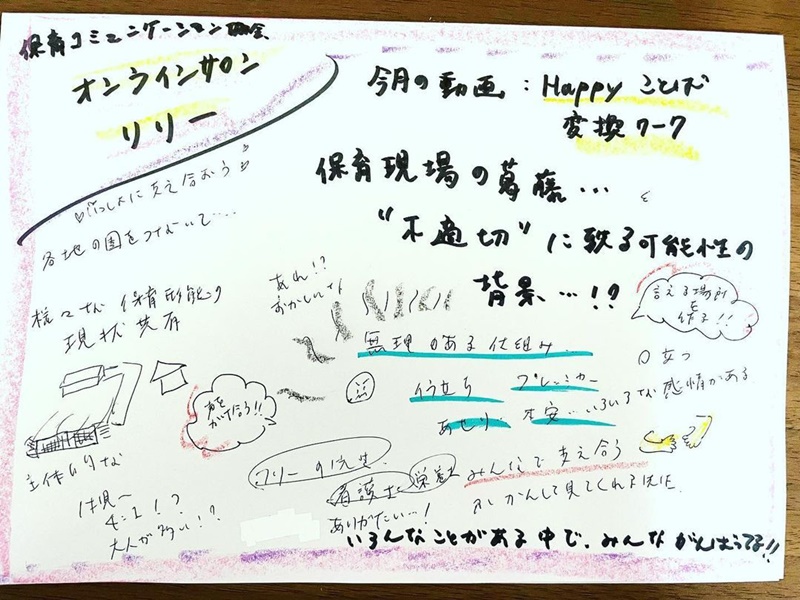 保育コミュニケーション協会
オンラインサロン
リリー
今月の動画:Happyことば
変換ワーク
いっしょに支え合おう
各地の園をつないで…
保育現場の葛藤…
"不適切"に至る可能性の
背景…!?
様々な保育形態の
現状共有
あれ!?
おかしいな
言える場所
を
作る!!
無理のある仕組み
苛立ち プレッシャー
あせり 不安…いろいろな感情がある
声を
かけ合う!!
主体的な
1歳児〜
4:1!?
大人が多い!?
フリーの先生
看護士 栄養士
ありがたい…!
みんなで支え合う
ふかんして見てくれる先生
いろんなことがある中で、みんながんばってる!!